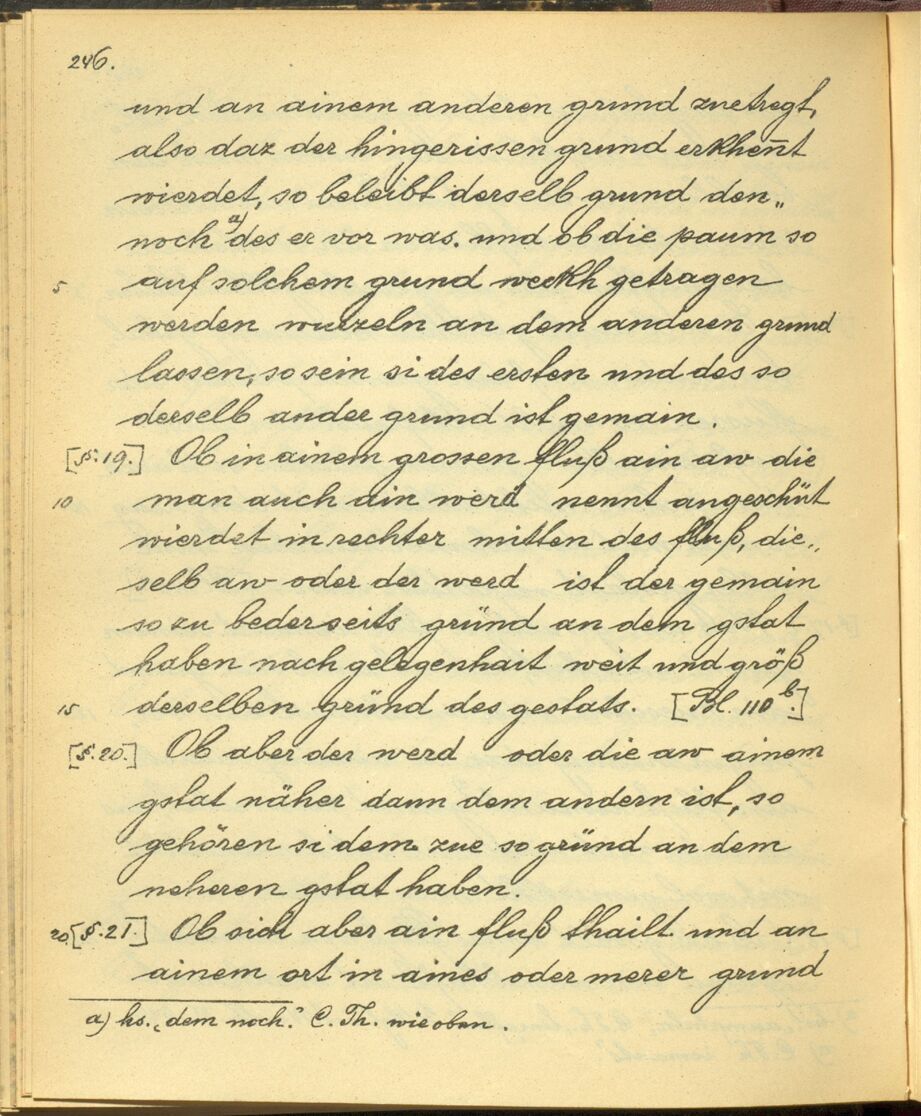 246.
und an ainem anderen grund zuetregt,
also daz der hingerissen grund erkhen̄t
wierdet, so beleibt derselb grund den„
noch a) des er vor was. und ob die paum so
5 auf solchem grund weckh getragen
werden wurzeln an dem anderen grund
lassen, so sein si des ersten und des so
derselb ander grund ist gemain.
[§. 19.] Ob in ainem grossen fluß ain aw die
10 man auch ain werd nennt angeschüt
wierdet in rechter mitten des fluß, die„
selb aw oder der werd ist der gemain
so zu bederseits gründ an dem gstat
haben nach gelegenhait weit und größ
15 derselben gründ des gestats. [Bl. 110 b.]
[§. 20.] Ob aber der werd oder die aw ainem
gstat näher dann dem andern ist, so
gehören si dem zue so gründ an dem
neheren gstat haben.
20 [§. 21.] Ob sich aber ain fluß thailt und an
ainem ort in aines oder merer grund
a) hs. „dem noch.“ C. Th. wie oben.